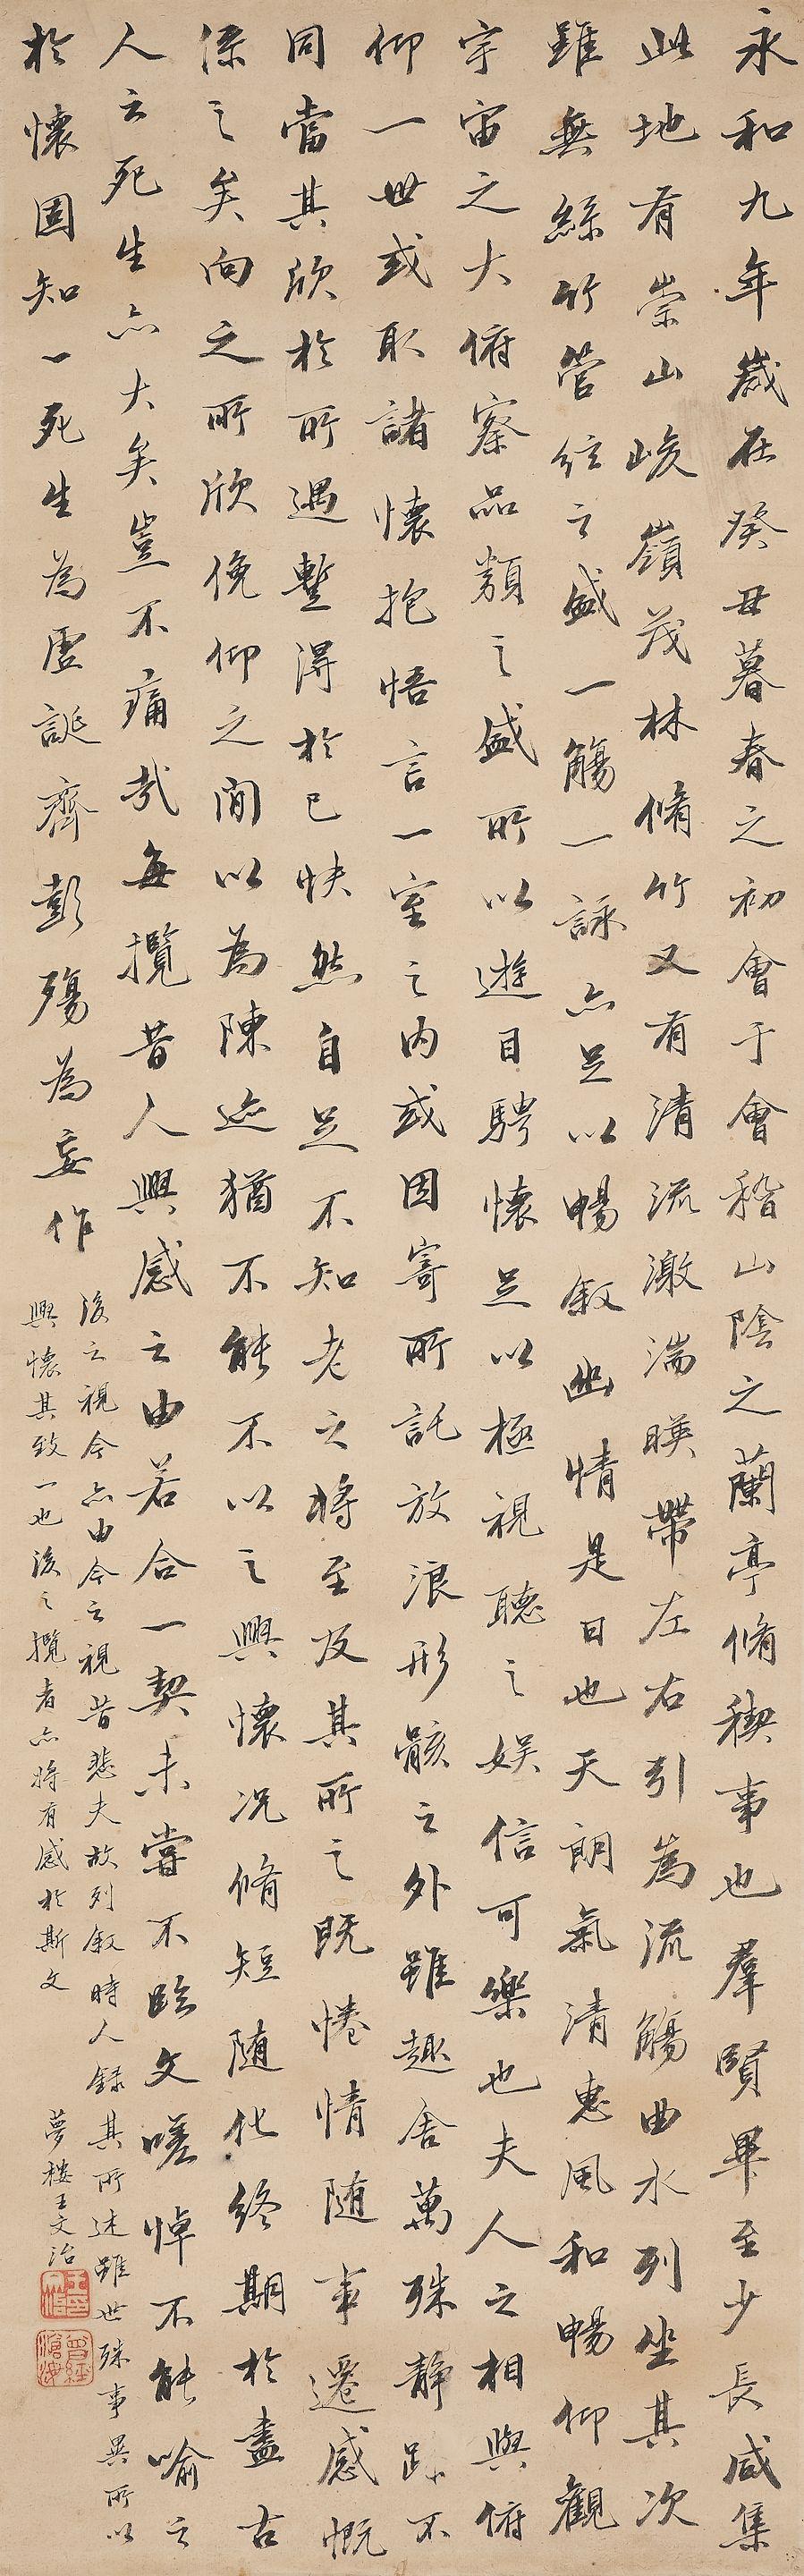 永和九年歲在癸丑暮春之初會于會稽山陰之蘭亭脩稧事也羣賢畢至少長咸集
此地有崇山峻嶺茂林脩竹又有清流激湍暎帶左右引為流觴曲水列坐其次
雖無絲竹管絃之盛一觴一詠亦足以暢敘幽情是日也天朗氣清惠風和暢仰觀
宇宙之大俯察品類之盛所以遊目騁懷足以極視聽之娛信可樂也夫人之相與俯
仰一世或取諸懷抱悟言一室之內或因寄所託放浪形骸之外雖趣舍萬殊靜躁不
同當其欣於所遇暫得於己快然自足不知老之將至及其所之既惓情隨事遷感慨
係之矣向之所欣俛仰之間以為陳迹猶不能不以之興懷況脩短隨化終期於盡古
人云死生亦大矣豈不痛哉每攬昔人興感之由若合一契未嘗不臨文嗟悼不能喻之
於懷固知一死生為虛誕齊彭殤為妄作
後之視今亦由今之視昔悲夫故列敘時人錄其所述雖世殊事異所以
興懷其致一也後之攬者亦將有感於斯文
夢樓王文治
王文治印
曾經滄海